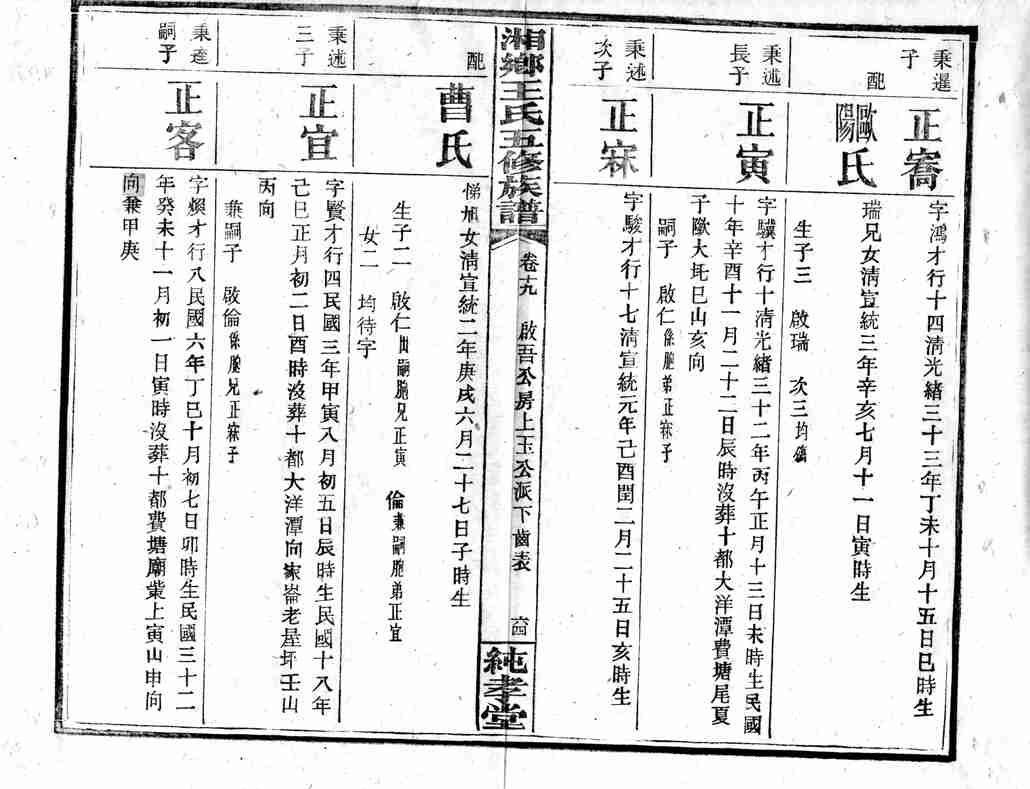 秉暹
子
正喬
字鴻才行十四清光緒三十三年丁未十月十五日巳時生
配
歐陽氏
瑞兄女清宣統三年辛亥七月十一日寅時生
生子三 啟瑞 次三均殤
秉述
長子
正寅
字驥才行十清光緒三十二年丙午正月十三日未時生民國
十年辛酉十一月二十二日辰時沒葬十都大洋潭費塘尾夏
子歐大坵巳山亥向
嗣子 啟仁係胞弟正寐子
秉述
次子
正寐
字駿才行十七清宣統元年己酉閏二月二十五日亥時生
湘鄉王氏五修族譜
卷十九 啟吾公房上玉公派下齒表
六四
純孝堂
配
曹氏
悌旭女清宣統二年庚戌六月二十七日子時生
生子二 啟仁出嗣胞兄正寅 倫兼嗣胞弟正宜
女二 均待字
秉述
三子
正宜
字賢才行四民國三年甲寅八月初五日辰時生民國十八年
己巳正月初二日酉時沒葬十都大洋潭向家崙老屋坪壬山
丙向
兼嗣子 啟倫係胞兄正寐子
秉達
嗣子
正客
字煥才行八民國六年丁巳十月初七日卯時生民國三十二
年癸未十一月初一日寅時沒葬十都費塘廟業上寅山申向
向兼甲庚